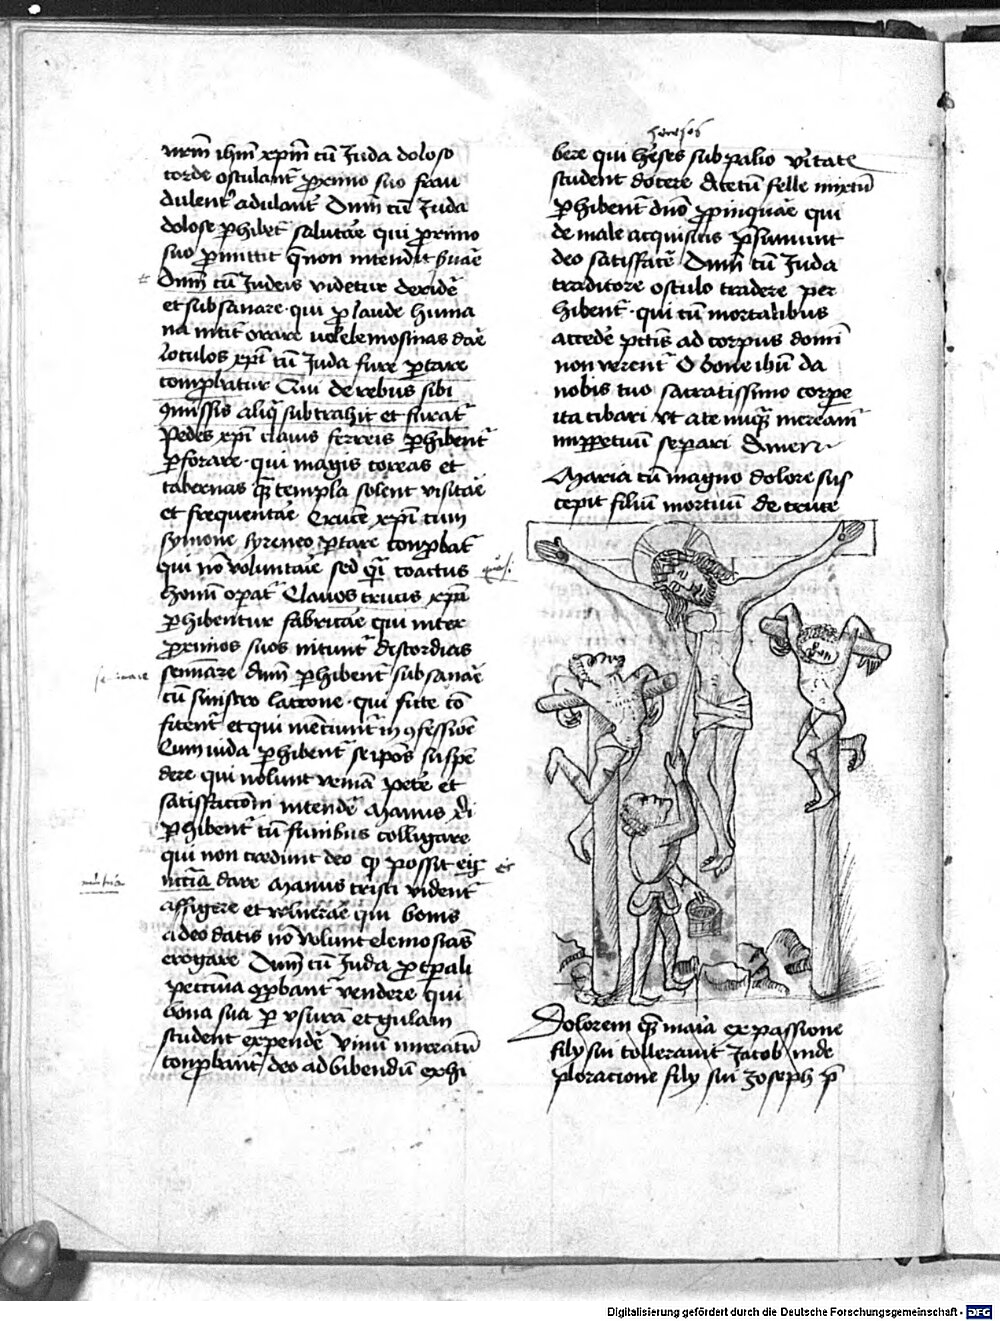 nrm̄ ihm̄ xp̄m cū Juda doloso
corde osculant̄ ꝓximo suo frau
dulent' adulant̄ Dnm̄ cū Juda
dolose ꝑhibet̄ salutāe qui ꝓximo
suo ꝓmittit qn̄ non intendit suāe
Dnm̄ cū Judeis videtur deridē
et subsanare · qui ꝓ laude huma
na nitit̄ orare uel elemosinas daē
Loculos xp̄i cū Juda fure ꝑtare
comꝓbātur Qui de rebus sibi
ꝯmissis aliq̄ subtrahit et furat̄
Pedes xp̄i clauis ferreis ꝑhibent̄
ꝑforare · qui magis coreas et
tabernas qm̄ templa solent visitāe
et frequentāe Crucē xp̄i cum
symone syreneo ꝑtare conꝓbat̄
qui nō voluntāe sed qi coactus quasi
bonū oꝑat̄ Clauos crucis xp̄i
ꝑhibentur fabricāe qui inter
ꝓximos suos nitunt̄ discordias
semīare dnm̄ ꝑhibent̄ subsanāe
cū sinistro latrone · qui ficte cō
fitent̄ et qui mēciunt̄ in ꝯfessiōe
Cum iuda ꝑhibent̄ seipōs suspē
dere qui nolunt veniā petē et
satisfaccom̄ intendē Manus xp̄i
ꝑhibent̄ cū funibus colligare
qui non credunt deo qp possit eis
dare Manus cristi vident̄
affigere et vulnerāe qui bonis
a deo datis nō volunt elemosias
erogare Dnm̄ cū Juda ꝓ tꝑali
peccunia ꝯꝓbant̄ vendere qui
bona sua ꝑ vsurā et gulam
student expendē Vinū mirratū
conꝓbant̄ deo ad bibendū exhi
heresos
bere qui hēses sub palio vītate
student docere Acetū felle mixtū
ꝑhibent̄ dnō ꝓpinquāe qui
de male acquisitis p̄sumunt
deo satisfacē Dnm̄ cū Juda
traditore osculo tradere per
hibent̄ · qui cū mortalibus
accedē pctīs ad corpus domī
non verent̄ O bone ihū da
nobis tuo sacratissimo corpe
ita cibari vt a te nūq̄ mēeam̄
inꝑpetuū separi Amen
Maria cū magno dolore sus
cepit filiū mortuū de cruce
Dolorem qm̄ maīa ex passione
filij sui tolleravit Jacob in de
ploracione filij sui Joseph p̄